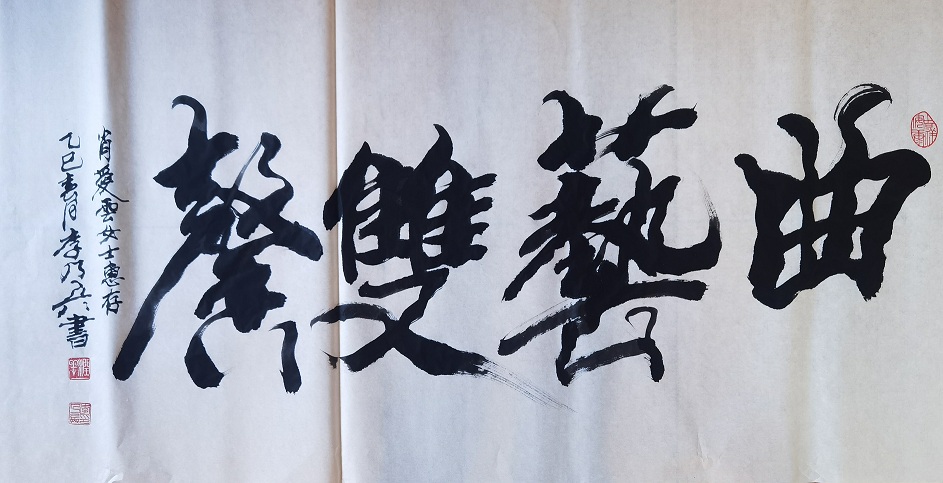 曲藝雙馨
肖愛雲女士惠存
乙巳春月李乃 書